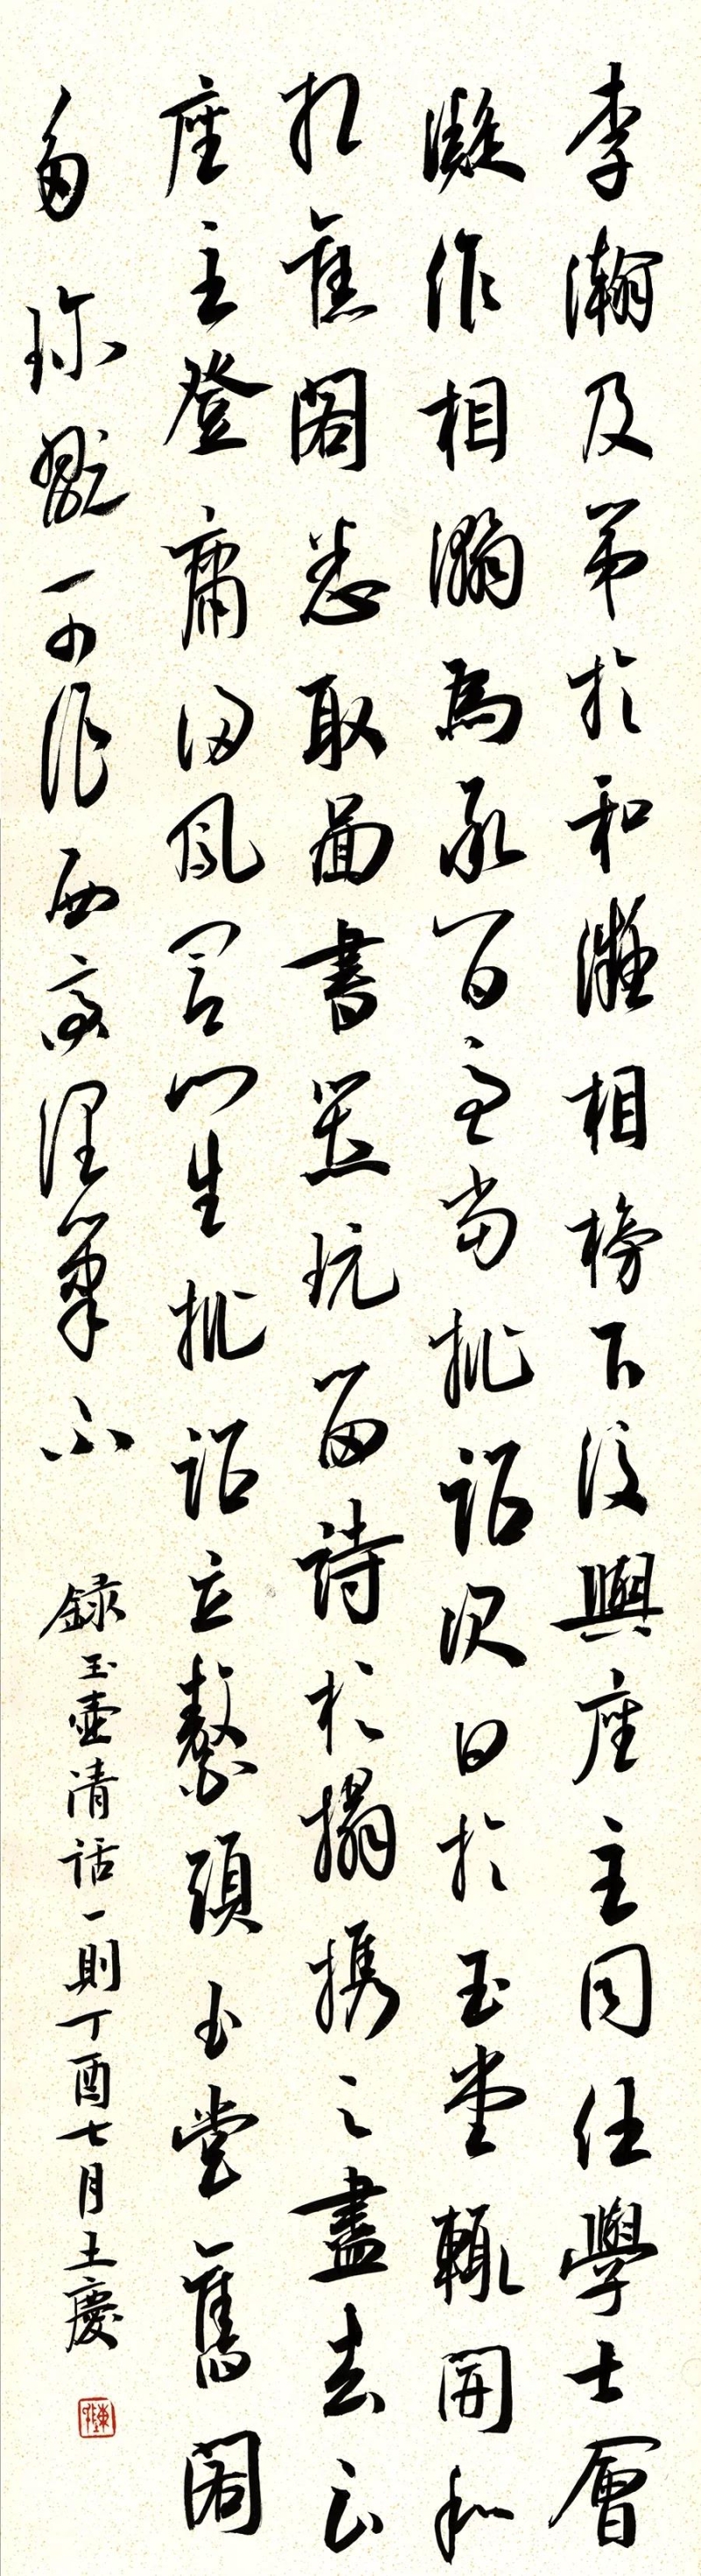 李瀚及第於和凝相榜下後與座主同任學士會
凝作相瀚為承旨適當批詔次日於玉堂輒開和
相舊閣悉取圖書器玩留詩於榻携之盡去云
座主登庸歸鳳閣門生批詔立鰲頭玉堂舊閣
多珍玩可作西齋潤筆不
錄玉壺清話一則丁酉七月士慶